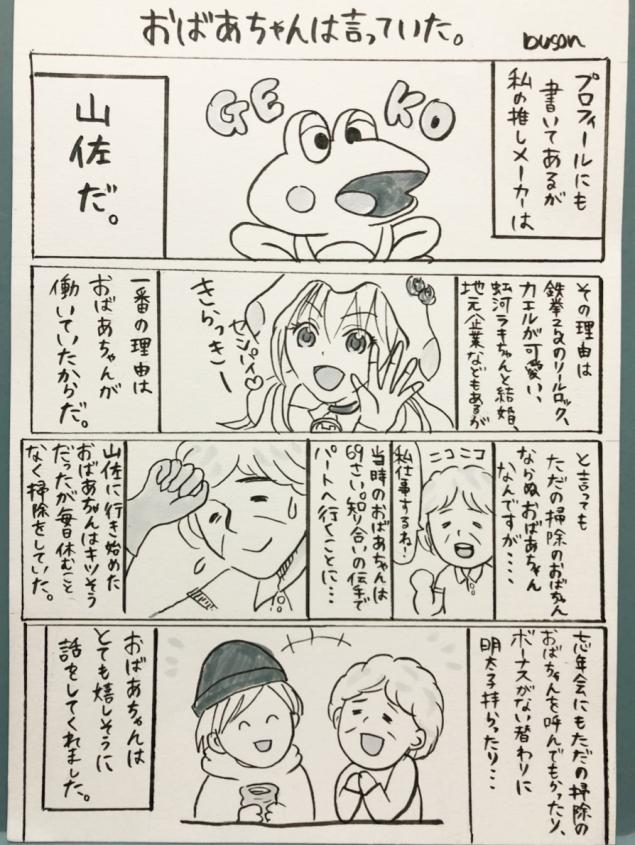 おばあちゃんは言っていた。
buson
プロフィールにも
書いてあるが
私の推しメーカーは
GE KO
山佐だ。
その理由は
鉄拳2ndのリールロック、
カエルが可愛い、
虹河ラキちゃんと結婚、
地元企業などもあるが
きらっきー
センパイ♡
一番の理由は
おばあちゃんが
働いていたからだ。
と言っても
ただの掃除のおばちゃん
ならぬおばあちゃん
なんですが・・・・
ニコニコ
私仕事するね!
当時のおばあちゃんは
69さい。知り合いの伝手で
パートへ行くことに・・・
山佐に行き始めた
おばあちゃんはキツそう
だったが毎日休むこと
なく掃除をしていた。
忘年会にもただの掃除の
おばちゃんを呼んでもらったり、
ボーナスがない替わりに
明太子持らったり・・・
おばあちゃんは
とても嬉しそうに
話をしてくれました。